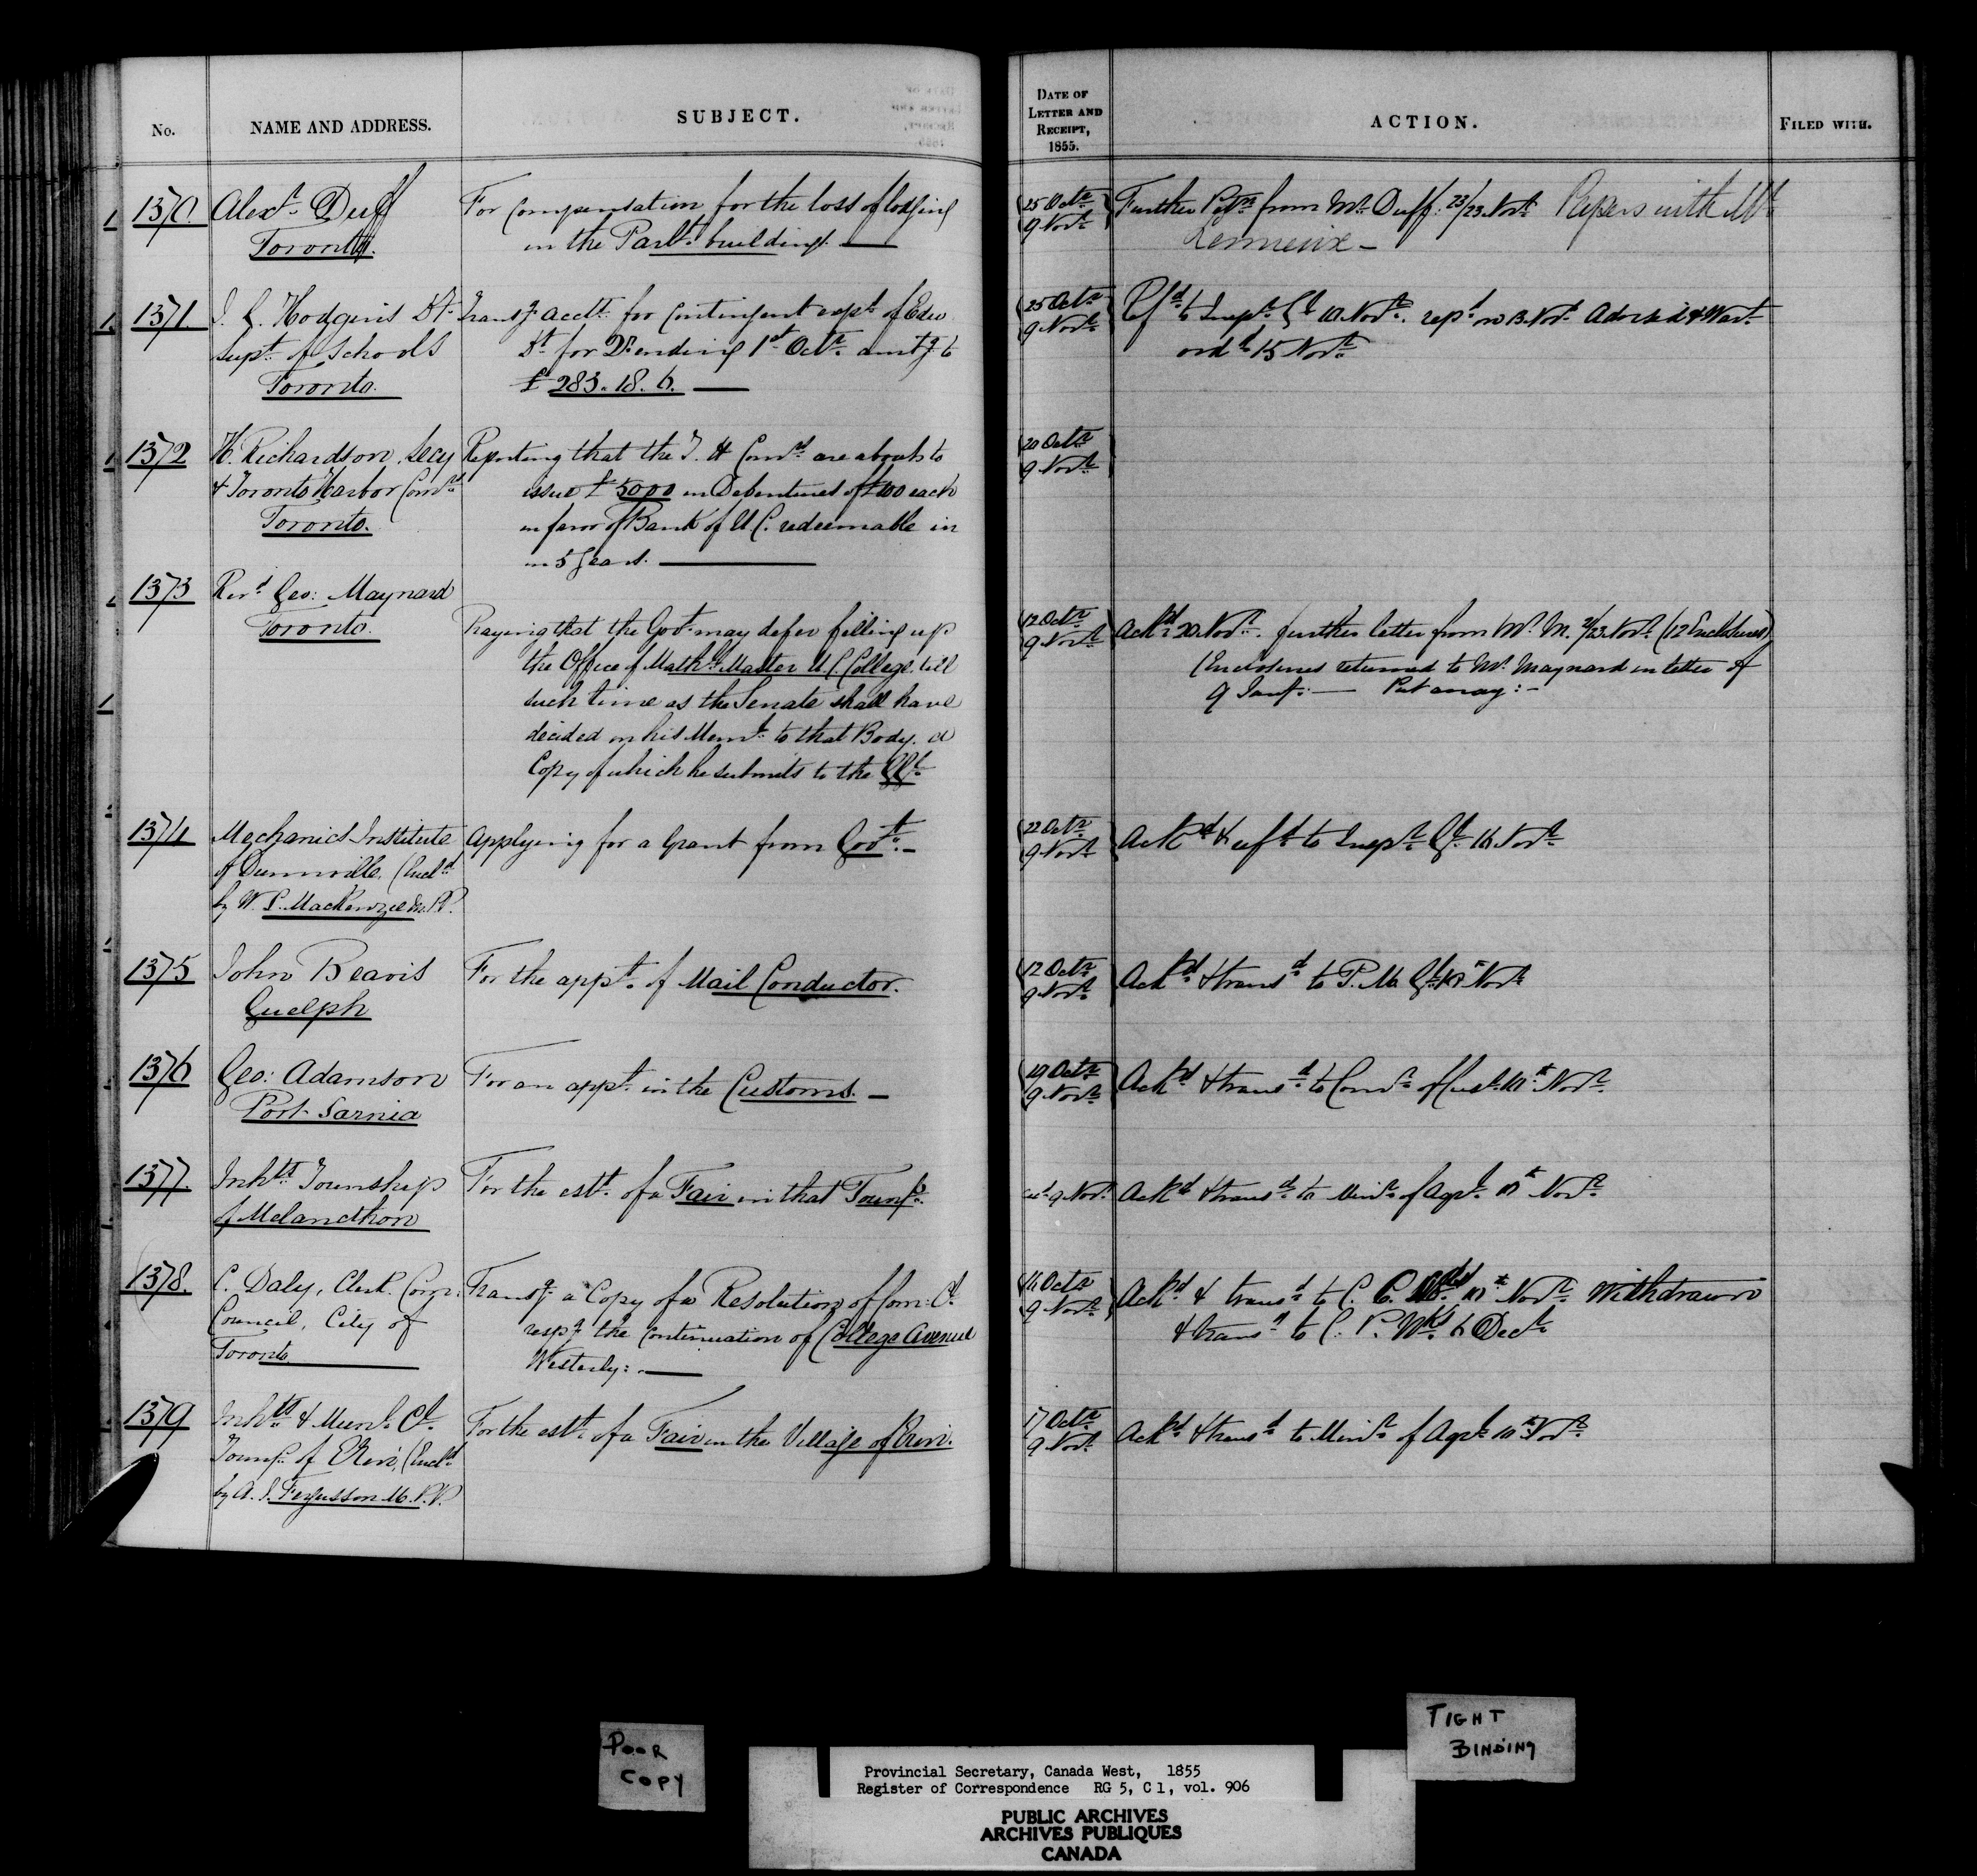 No.
NAME AND ADDRESS.
SUBJECT.
DATE OF LETTER AND RECEIPT, 1855.
ACTION.
FILED WITH.
1370
Alexr. Duff
Toronto.
For Compensation for the loss of lodging
in the Parlt. buildings.
25 Octr.
9 Novr.
Further Petn. from Mr. Duff. 23/23 Novr. Papers with Mr.
Lemieux -
1371.
J. G. Hodgins Dy.
Supt. of Schools
Toronto.
Transg acctt. for Contingent expt. of Educ
Dt. for Qr. ending 1st Octr. amtg to
£283. 18. 6.
25 Octr.
9 Novr.
Refd. to Inspr. Gl. 10 Novr. repd. on 13 Novr. Advised & Wart.
ordd. 15 Novr.
1372
H. Richardson, Secy
& Toronto Harbor Comrs.
Toronto.
Reporting that the T. H Comrs. are about to
issue £5000 in Debentures of £100 each
in favor of Bank of U C. redeemable in
in 5 Years.
20 Octr.
9 Novr.
1373
Revd. Geo: Maynard
Toronto.
Praying that the Govt. may defer filling up
the Office of Mathl. Master U. C. College, till
such time as the Senate shall have
decided on his Meml. to that Body. a
Copy of which he submits to the GGl.
12 Octr.
9 Novr.
Ackd. 20 Novr. further letter from Mr. M. 21/23 Novr. (12 Enclosures)
(Enclosures returned to Mr. Maynard in letter of
9 Jany. — Put away: -
1374
Mechanics Institute
of Dunnville, (Encld.
by W. L. MacKenzie M.P.P.
Applying for a Grant from Govt. -
22 Octr.
9 Novr.
Ackd. & refd. to Inspr. Gl. 16 Novr.
1375
John Beavis
Guelph
For the appt. of Mail Conductor.
12 Octr.
9 Novr.
Ackd. & transd. to P. M. Gl. Novr.
1376
Geo: Adamson
Port Sarnia
For an appt. in the Customs. -
19 Octr.
9 Novr.
Ackd. & transd. to Comr. of Cust. 10th Novr.
1377.
Inhts. Township
of Melancthon
For the estt. of a Fair in that Townp.
9 Novr.
Ackd. & transd. to Minr. of Agrl. 10th Novr.
1378.
C. Daly, Clerk Com:
Council, City of
Toronto
Transg a Copy of a Resolution of Com: Cl.
respg the Continuation of College Avenue
Westerly: -
16 Octr.
9 Novr.
Ackd. & transd. to C. C. 10th Novr. Withdrawn
& transd. to C. P. Wks. 6 Decr.
1379
Inhts. & Munl. Cl.
Townp. of Erin, (Encld.
by A. J. Fergusson M.P.P.
For the estt. of a Fair in the Village of Erin.
17 Octr.
9 Novr.
Ackd. & transd. to Minr. of Agrl. 10th Novr.
POOR
COPY
TIGHT
BINDING
Provincial Secretary, Canada West, 1855
Register of Correspondence RG 5, C 1, vol. 906
PUBLIC ARCHIVES
ARCHIVES PUBLIQUES
CANADA